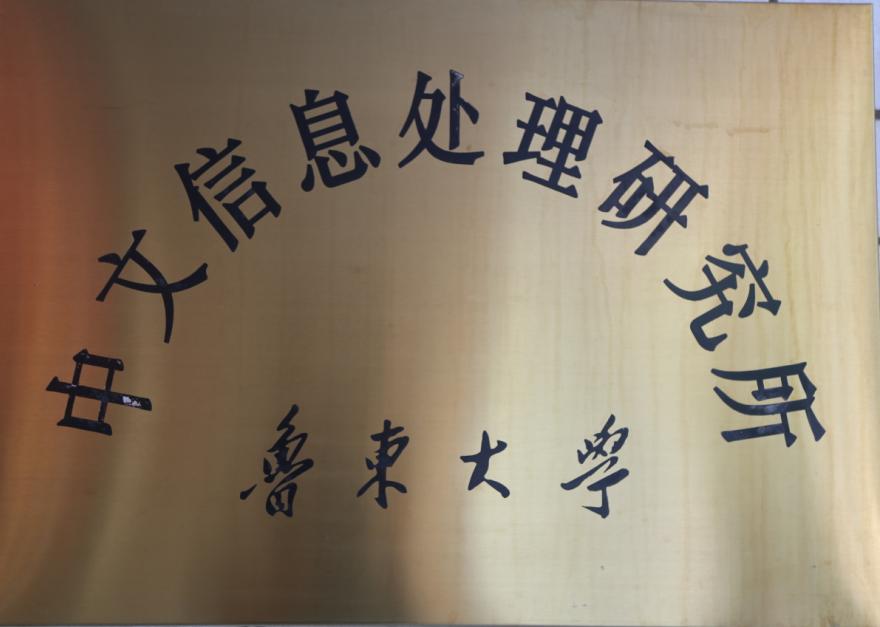 中文信息处理研究所
魯東大學